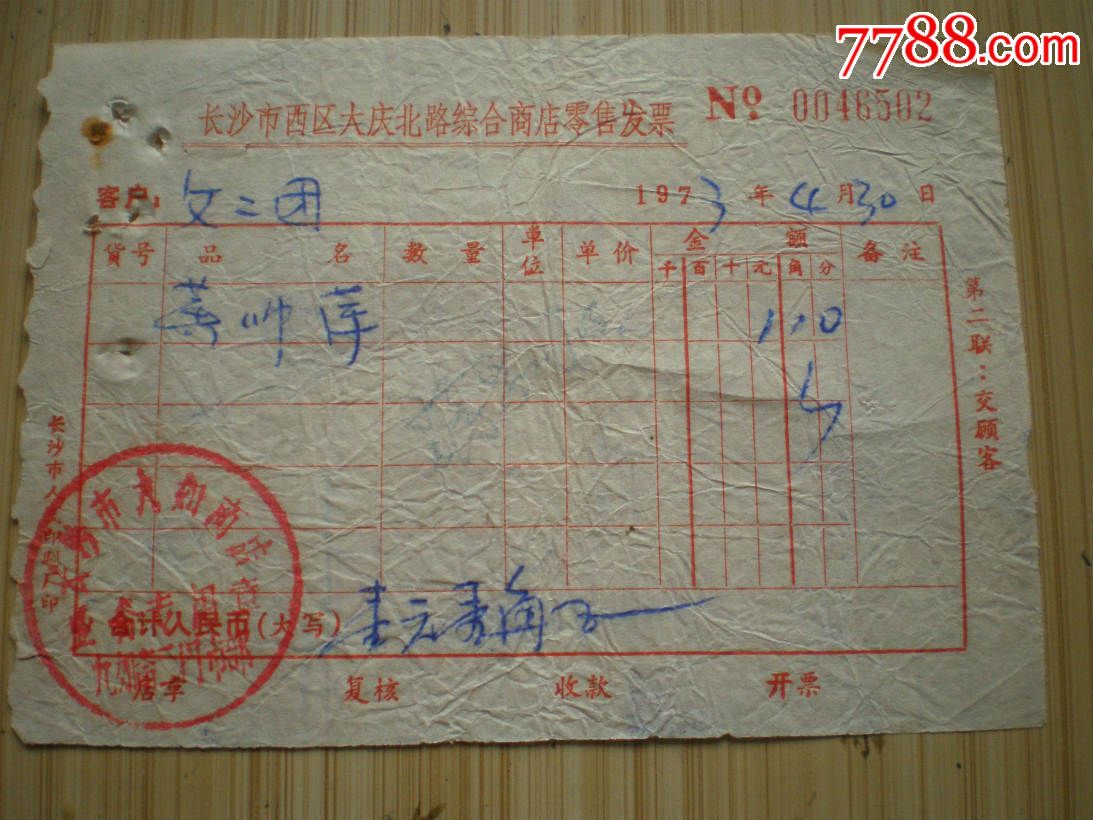 7788.com
长沙市西区大庆北路综合商店零售发票 No 0046502
客户: 文二团 1973年4月30日
货号 品名 数量 单位 单价 金额 备注
千 百 十 元 角 分
110
第二联:交顾客
合计人民币(大写) 壹元壹角正
店章 复核 收款 开票